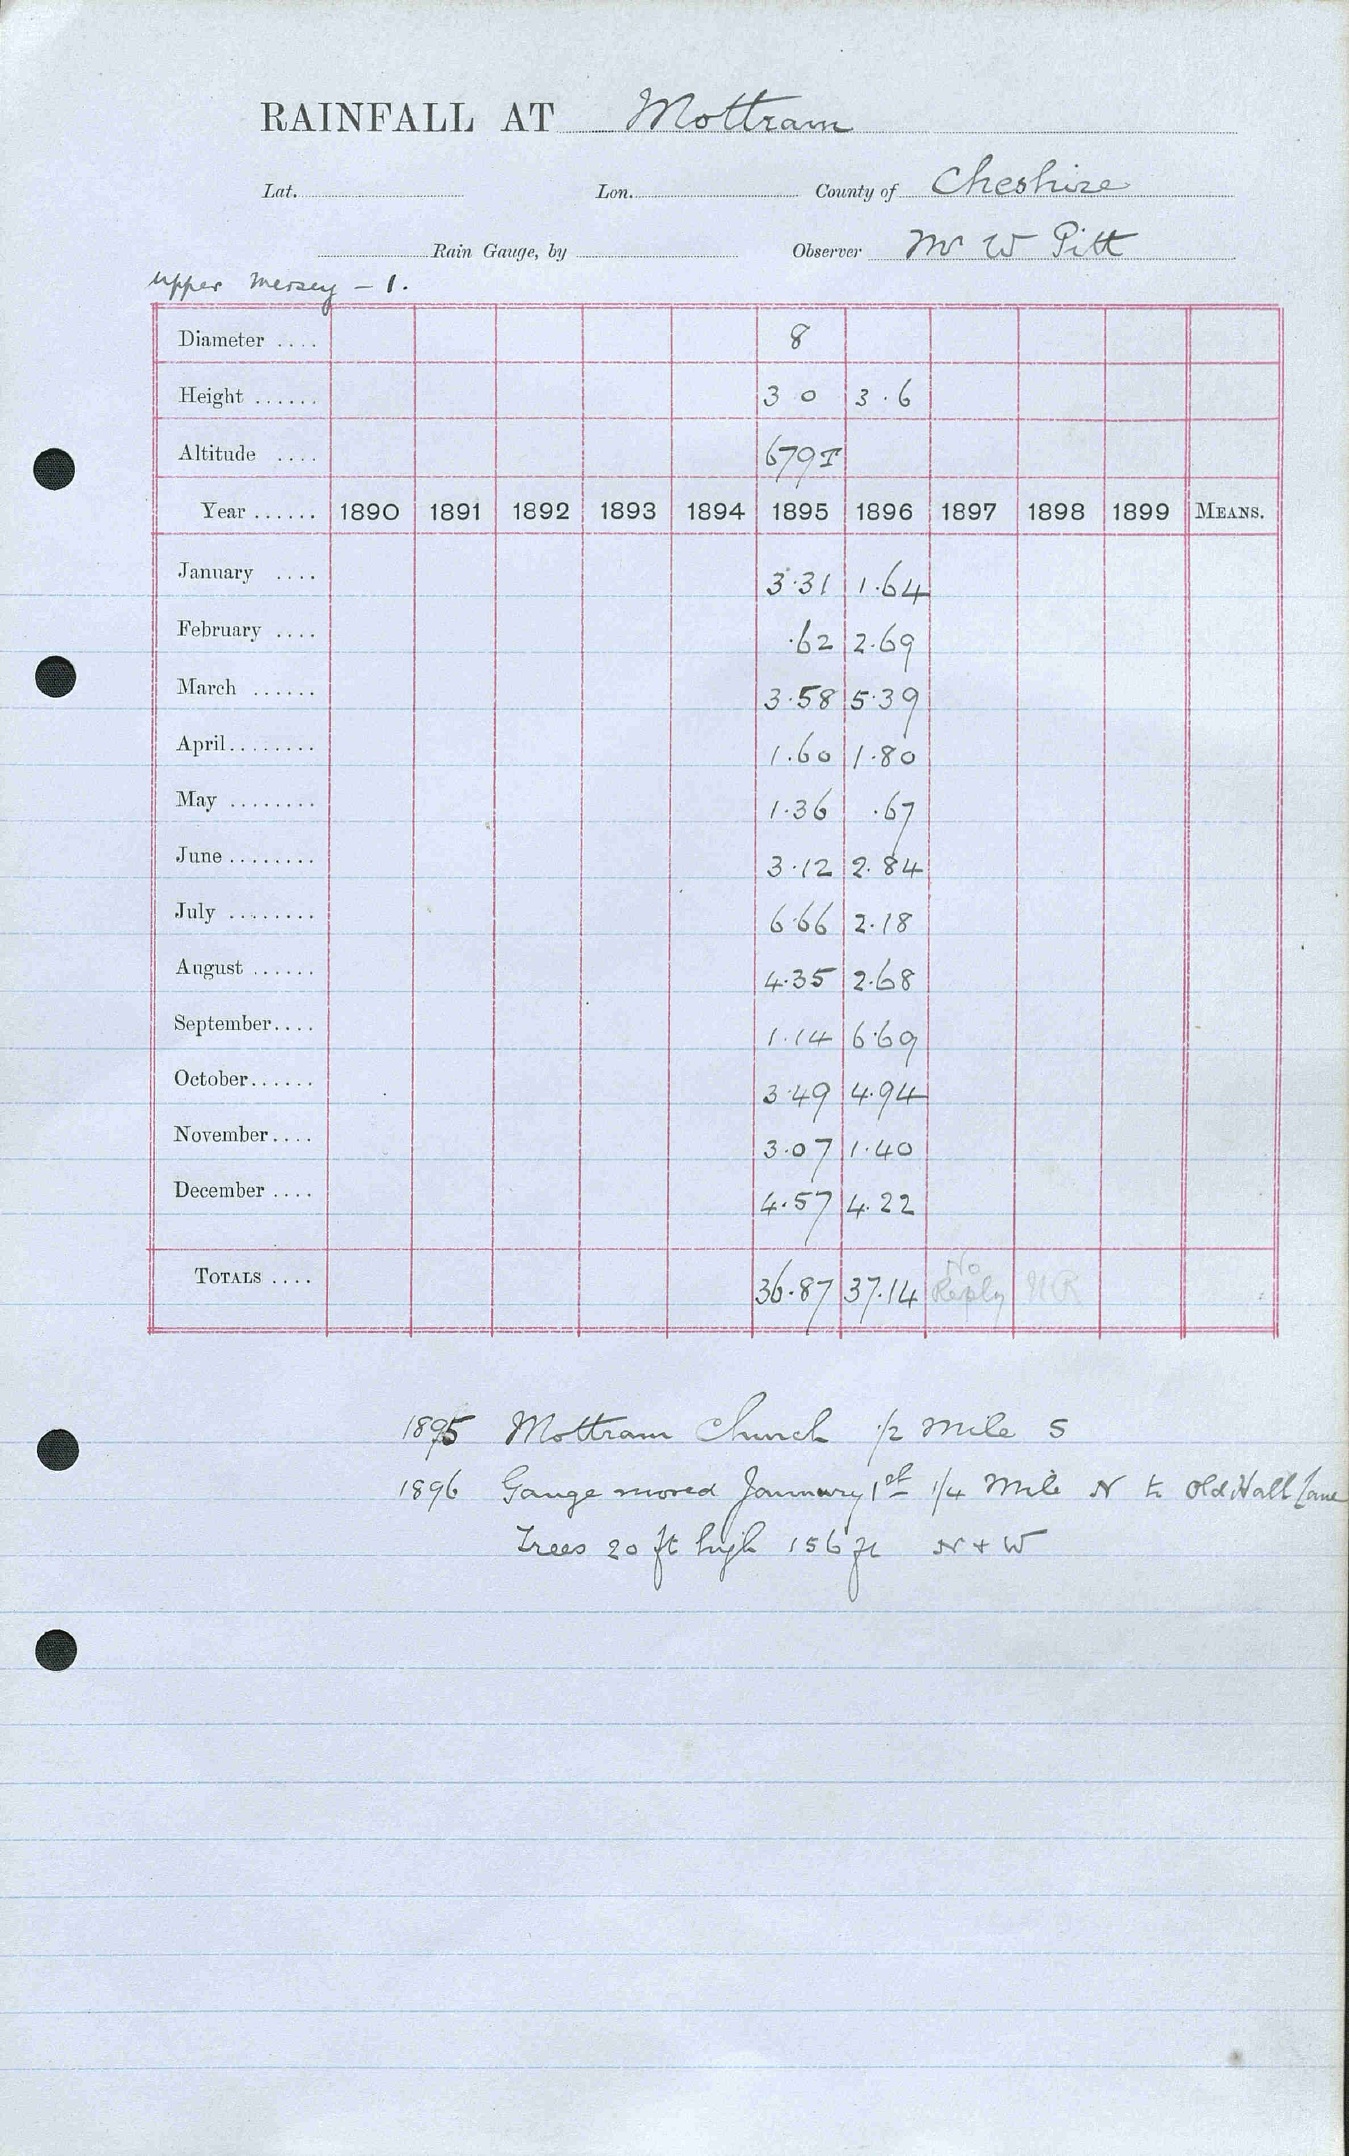 RAINFALL AT Mottram
Lat. Lon. County of Cheshire
Rain Gauge, by Observer Mr W Pitt
Upper Mersey - 1.
Diameter .... 8
Height ...... 3 0 3.6
Altitude .... 679T
Year ...... 1890 1891 1892 1893 1894 1895 1896 1897 1898 1899 MEANS.
January .... 3.31 1.64
February .... .62 2.69
March ...... 3.58 5.39
April........ 1.60 1.80
May ........ 1.36 .67
June ........ 3.12 2.84
July ........ 6.66 2.18
August ...... 4.35 2.68
September.... 1.14 6.69
October...... 3.49 4.94
November.... 3.07 1.40
December .... 4.57 4.22
TOTALS .... 36.87 37.14 No Reply NR
1895 Mottram Church 1/2 mile S
1896 Gauge moved January 1st 1/4 mile N to Old Hall Lane
Trees 20 ft high 156 ft N + W